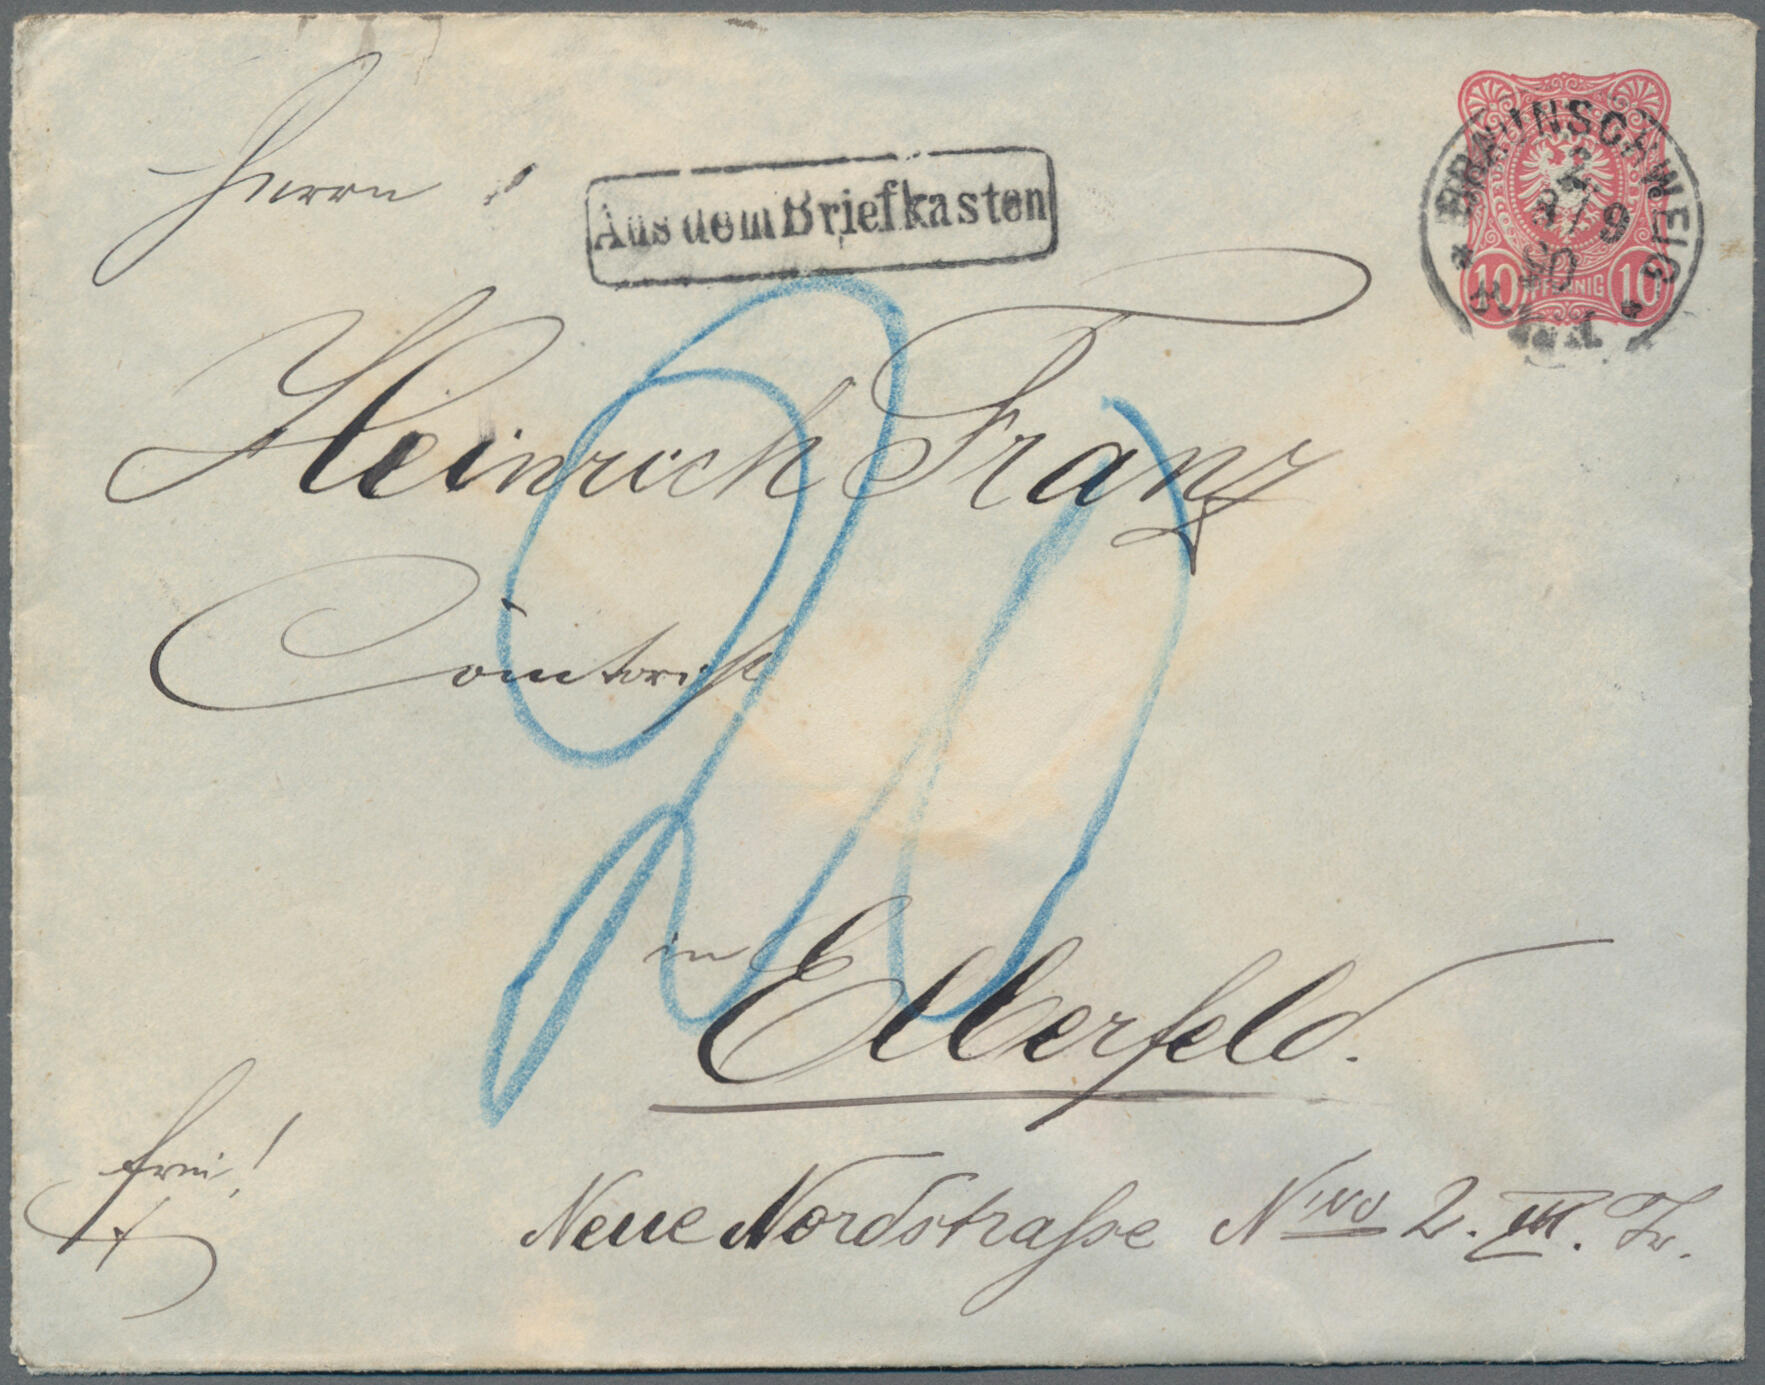 Herrn
Aus dem Briefkasten
BRAUNSCHWEIG
9
10 PFENNIG 10
Heinrich Franz
Comtorist
20
in Elberfeld.
frei!
Neue Nordstraße Nro 2. III. Tr.